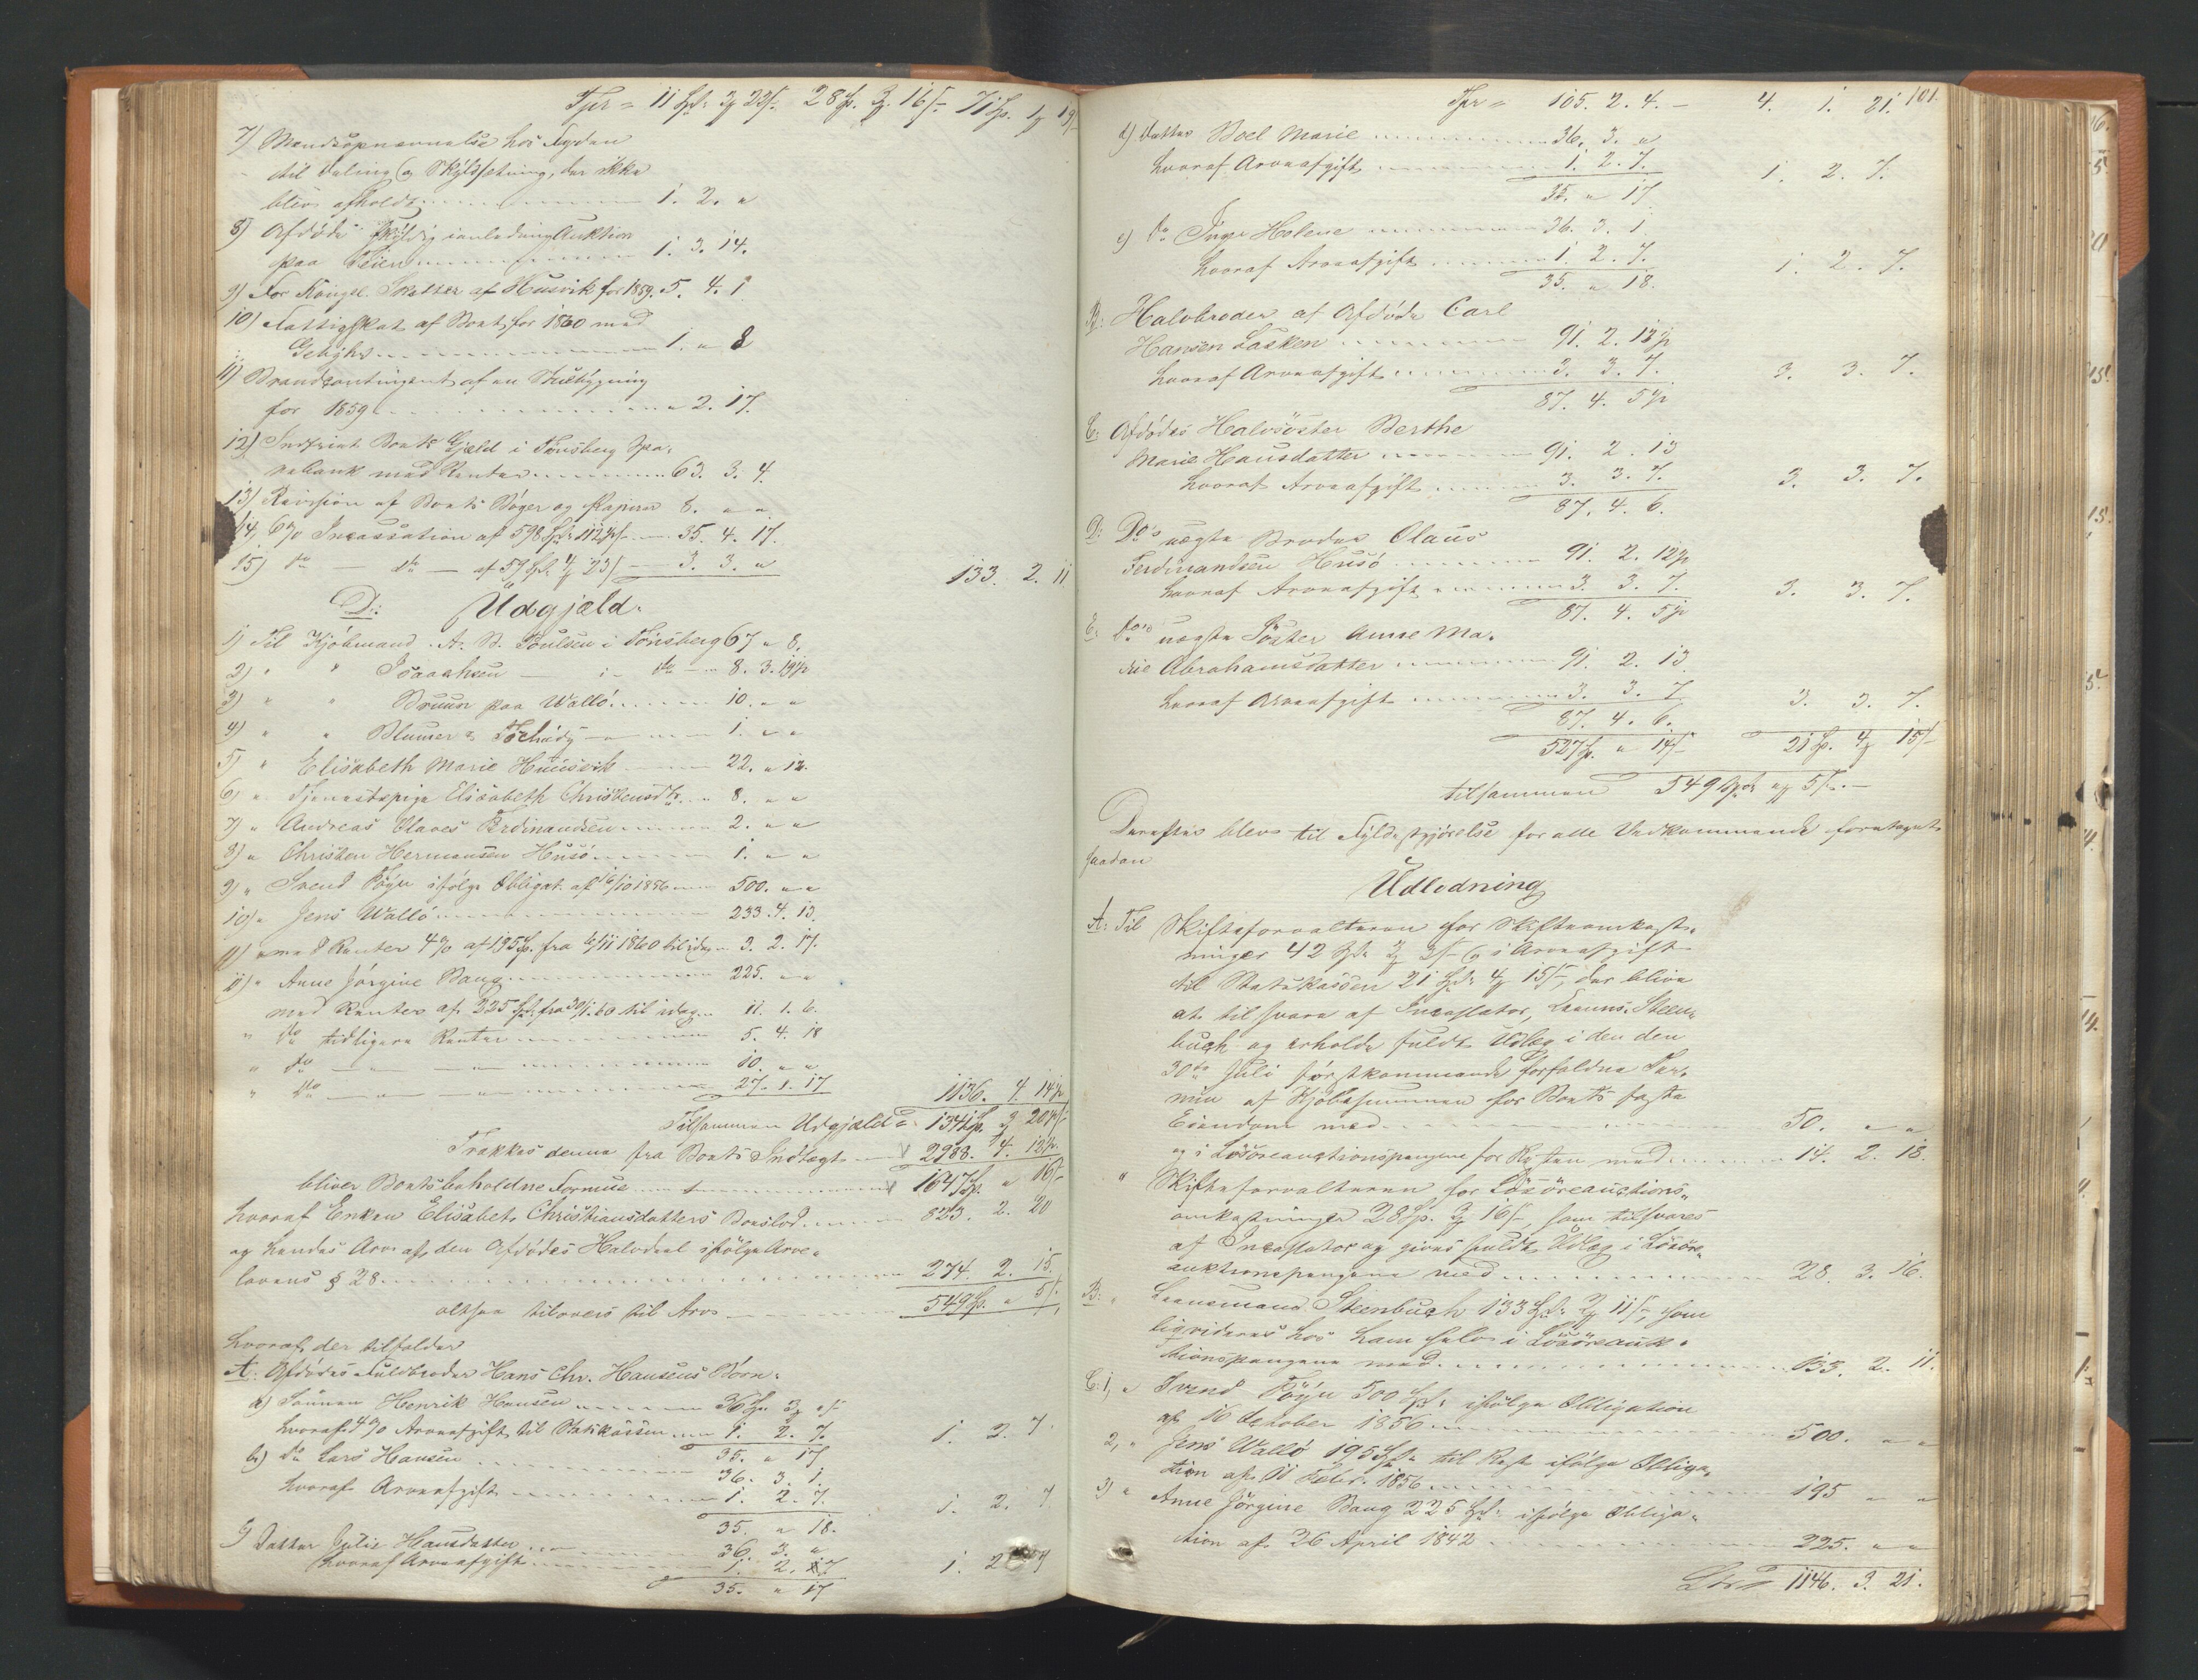 Tpr = 11 Spd. 3 23 s. 28 Sp. 3. 16 s. 71 Sp. 1 19 s.
7) Mandsopnævnelse hos Fogden
til Deling og Skyldsetning, der ikke
blev afholdt 1. 2. "
8) Afdøde skyldig i anledning Auktion
paa Teien 1. 3. 14.
9) For Kongel. Skatter af Husvik for 1859. 5. 4. 1
10) Fattigskat af Boet for 1860 med
Gebyhr 1. " 8
11) Brandcontingent af en Stuebygning
for 1859 " 2. 17.
12) Indfriet Boets Gjæld i Tønsberg Spa-
rebank med Renter 63. 3. 4.
13) Revision af Boets Bøger og Papirer 8. " "
14) 6 % Incassation af 598 Spd. 112 s. 35. 4. 17.
15) do — do — af 59 Spd. 4 23 s. 3. 3. " 133. 2. 11
D: Udgjæld.
1) Til Kjøbmand A. B. Poulsen i Tønsberg 67 " 8.
2) " " Isaachsen — i — do 8. 3. 19½
3) " " Bruun paa Walló 10. " "
4) " " Blumer 1. " "
5) " Elisabeth Marie Huusvik 22. " 12.
6) " Tjenestepige Elisabeth Christensdtr. 8. " "
7) " Andreas Olaves Ferdinandsen 2. " "
8) " Christen Hermansen Husö 1. " "
9) " Svend Föyn ifølge Obligat. af 16/10 1856 500. " "
10) " Jens Walló 233. 4. 13.
11) " med Renter 4 % af 195 Sp. fra 6/11 1860 til idag 3. 2. 17.
11) " Anne Jörgine Bang 225. " "
med Renter af 225 Spd. fra 30/1.60 til idag 11. 1. 6.
" do tidligere Renter 5. 4. 18
" do — — 10. " "
" do — — 27. 1. 17 1136. 4. 14½
Tilsammen Udgjæld = 1341 Sp. 3 20½ s.
Trækkes denne fra Boets Indtægt 2988. 4. 12½.
bliver Boets beholdne Formue 1647 Sp. " 16 s.
hvoraf Enken Elisabet Christiansdatters Boeslod 823. 2. 20
og hendes Arv af den Afdødes Halvdeel ifølge Arve-
lovens § 28 274. 2. 15.
altsaa tilovers til Arv 549 Sp. " 5 s.
hvoraf der tilfalder
A: Afdødes Fuldbroder Hans Chr. Hansens Börn:
a) Sønnen Henrik Hansen 36 Sp. 3 " s.
hvoraf 4 % Arveafgift til Statskassen 1. 2. 7. 1. 2. 7.
35. " 17
b) do Lars Hansen 36. 3. 1.
hvoraf Arveafgift 1. 2. 7. 1. 2. 7
35. " 18.
c) Datter Julie Hansdatter 36. 3. "
hvoraf Arveafgift 1. 2. 7 1. 2. 7
35. " 17
101.
Tpr = 105. 2. 4. — 4. 1. 21.
d) Datter Boel Marie 36. 3. "
hvoraf Arveafgift 1. 2. 7. 1. 2. 7.
35. " 17.
e) do Inger Helene 36. 3. 1
hvoraf Arveafgift 1. 2. 7. 1. 2. 7.
35. " 18.
B: Halvbroder af Afdøde Carl
Hansen Lasken 91. 2. 12½
hvoraf Arveafgift 3. 3. 7. 3. 3. 7.
87. 4. 5½
C: Afdødes Halvsöster Berthe
Marie Hansdatter 91. 2. 13
hvoraf Arveafgift 3. 3. 7. 3. 3. 7.
87. 4. 6.
D: Do's uægte Broder Olaus
Ferdinandsen Husö 91. 2. 12½
hvoraf Arveafgift 3. 3. 7. 3. 3. 7.
87. 4. 5½
E: Do's uægte Söster Anne Ma-
rie Abrahamsdatter 91. 2. 13
hvoraf Arveafgift 3. 3. 7 3. 3. 7.
87. 4. 6.
527 Sp. " 14 s. 21 Sp. 4 15 s.
tilsammen 549 Spd. " 5 s. —
Derefter blev til Fyldestgjørelse for alle Vedkommende foretaget
saadan
Udlodning
A: Til Skifteforvalteren for Skifteomkost-
ninger 42 Spd. 2 3 s. og i Arveafgift
til Statskassen 21 Spd. 4 15 s., der blive
at tilsvare af Incassator, Lensm. Steen-
buch og erholde fuldt Udlæg i den den
30te Juli førstkommende forfaldne Ter-
min af Kjøbesummen for Boets faste
Eiendom med 50. " "
og i Lösöreauctionspengene for Resten med 14. 2. 18.
" Skifteforvalteren for Lösöreauctions-
omkostninger 28 Sp. 3 16 s., som tilsvares
af Incassator og gives fuldt Udlæg i Lösöre-
auktionspengene med 28. 3. 16.
B: " Lensmand Steenbuch 133 Spd. 2 11 s., som
liqvideres hos ham selv i Lösöreauk-
tionspengene med 133. 2. 11.
C: 1, " Svend Föyn 500 Spd. ifølge Obligation
af 16 October 1856 500. " "
2, " Jens Walló 195 Spd. til Rest ifølge Obliga-
tion af 11 Febr. 1856 195 " "
3) " Anne Jörgine Bang 225 Spd. ifølge Obliga-
tion af 26 April 1842 225. " "
Lat. = 1146. 3. 21.